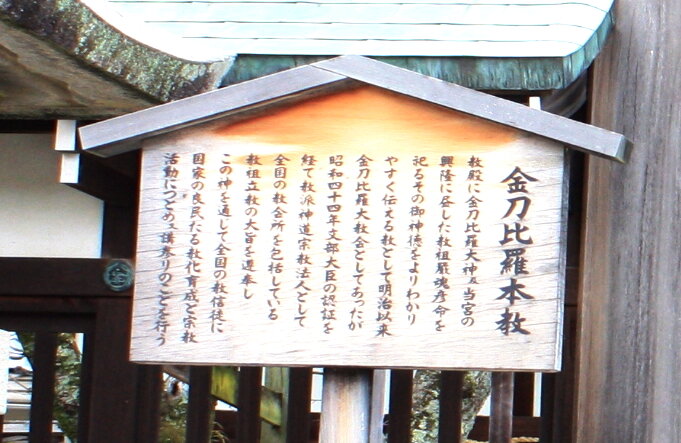 金刀比羅本教
教殿に金刀比羅大神及当宮の
興隆に尽した教祖厳魂彦命を
祀るその御神徳をよりわかり
やすく伝える教として明治以来
金刀比羅大教会としてあったが
昭和四十四年文部大臣の認証を
経て教派神道宗教法人として
全国の教会所を包括している
教祖立教の大旨を遵奉し
この神を通して全国の教信徒に
国家の良民たる教化育成と宗教
活動につとめ又講参りのことを行う